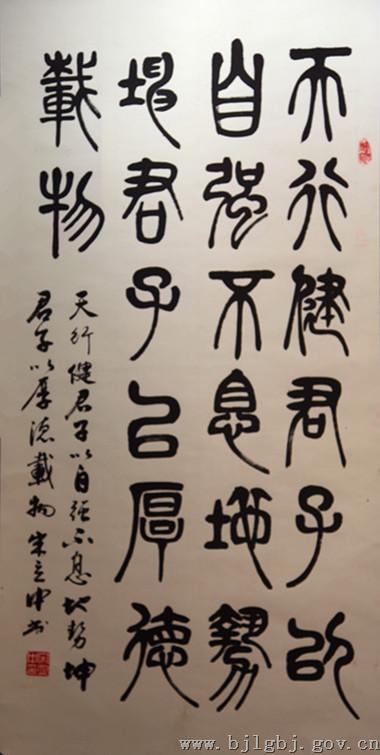 天行健君子以
自强不息地勢
坤君子以厚德
載物
天行健君子以自强不息地势坤
君子以厚德載物 宋立中书
www.bjlgbj.gov.cn